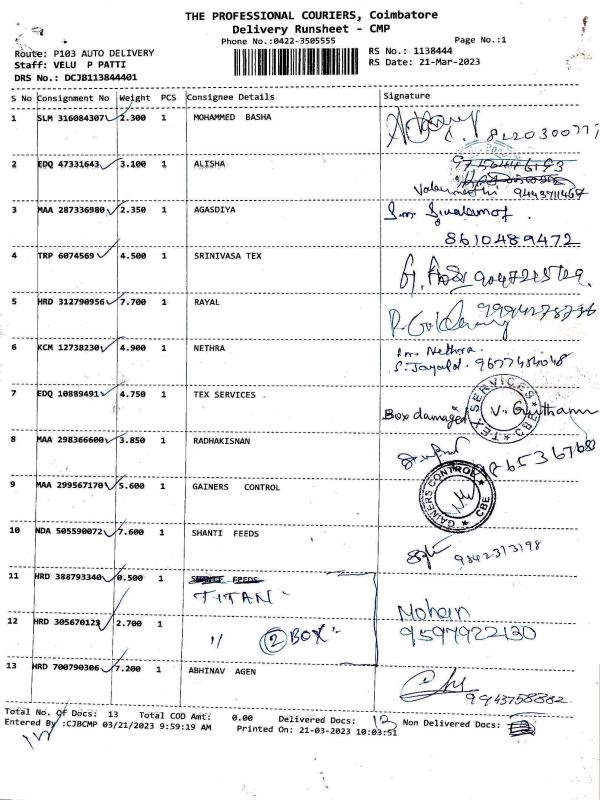 THE PROFESSIONAL COURIERS, Coimbatore
Delivery Runsheet - CMP
Phone No.:0422-3505555 Page No.:1
Route: P103 AUTO DELIVERY RS No.: 1138444
Staff: VELU P PATTI RS Date: 21-Mar-2023
DRS No.: DCJB113844401
S No Consignment No Weight PCS Consignee Details Signature
1 SLM 316084307 2.300 1 MOHAMMED BASHA
2 EDQ 47331643 3.100 1 ALISHA
9443711467
3 MAA 287336980 2.350 1 AGASDIYA
8610489472
4 TRP 6074569 4.500 1 SRINIVASA TEX
5 HRD 312790956 7.700 1 RAYAL
6 KCM 12738230 4.900 1 NETHRA Nethra
7 EDQ 10889491 4.750 1 TEX SERVICES Box damaged
TEX SERVICES CBE
8 MAA 298366600 3.850 1 RADHAKISNAN
9 MAA 299567170 5.600 1 GAINERS CONTROL
GAINERS CONTROL CBE
10 NDA 505590072 7.600 1 SHANTI FEEDS
9842313198
11 HRD 388793340 0.500 1 SHANTI FEEDS
TITAN
12 HRD 305670123 2.700 1 Mohan
" 2 BOX 9597922130
13 HRD 700790306 7.200 1 ABHINAV AGEN
9943758882
Total No. Of Docs: 13 Total COD Amt: 0.00 Delivered Docs: 13 Non Delivered Docs:
Entered By :CJBCMP 03/21/2023 9:59:19 AM Printed On: 21-03-2023 10:03:51